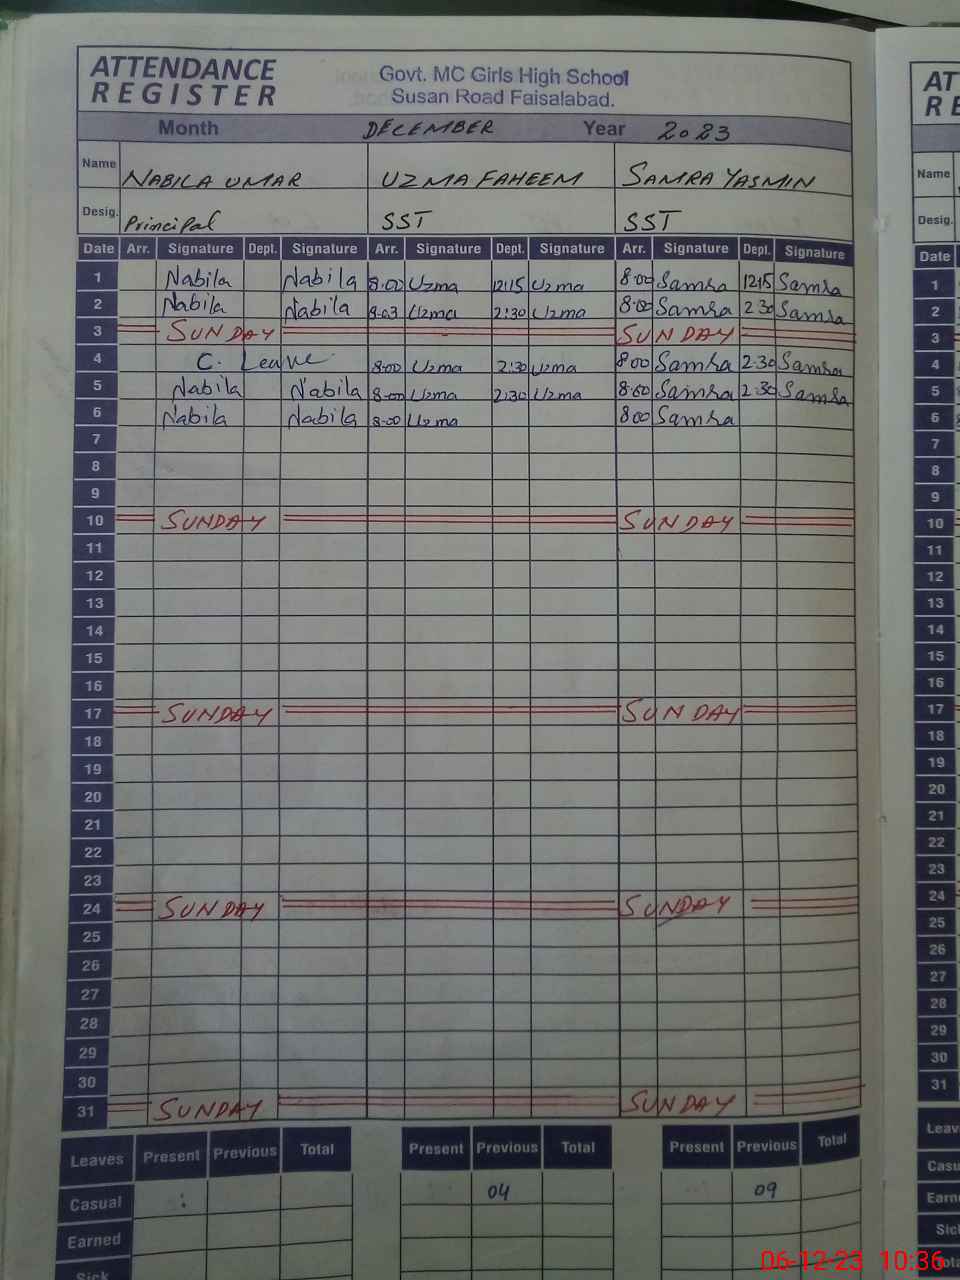 ATTENDANCE REGISTER
Govt. MC Girls High School
Susan Road Faisalabad.
Month DECEMBER Year 2023
Name NABILA UMAR UZMA FAHEEM SAMRA YASMIN
Desig. Principal SST SST
Date Arr. Signature Dept. Signature Arr. Signature Dept. Signature Arr. Signature Dept. Signature
1 Nabila Nabila 8.00 Uzma 12:15 Uzma 8.00 Samra 12:15 Samra
2 Nabila Nabila 8.03 Uzma 2:30 Uzma 8.00 Samra 2.30 Samra
3 SUNDAY SUNDAY
4 C. Leave 8.00 Uzma 2:30 Uzma 8.00 Samra 2.30 Samra
5 Nabila Nabila 8.00 Uzma 2:30 Uzma 8.00 Samra 2.30 Samra
6 Nabila Nabila 8.00 Uzma 8.00 Samra
7
8
9
10 SUNDAY SUNDAY
11
12
13
14
15
16
17 SUNDAY SUNDAY
18
19
20
21
22
23
24 SUNDAY SUNDAY
25
26
27
28
29
30
31 SUNDAY SUNDAY
Leaves Present Previous Total Present Previous Total Present Previous Total
Casual 04 09
Earned
Sick
Name
Desig.
Date
1
2
3
4
5
6
7
8
9
10
11
12
13
14
15
16
17
18
19
20
21
22
23
24
25
26
27
28
29
30
31
06-12-23 10:36